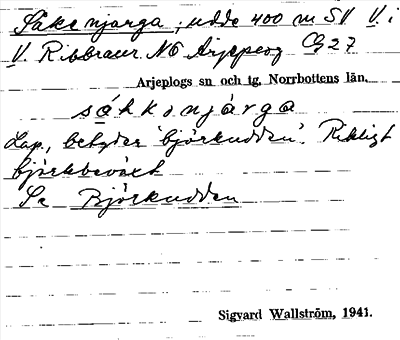 Sakenjarga, udde 400 m SV V. i
V. Ribbraur NO Arjeplog Cg 27
Arjeplogs sn och tg, Norrbottens län.
sákkonjárga
Lap, betyder 'björkudden'. Rikligt
björkbeväxt
Se Björkudden
Sigvard Wallström, 1941.